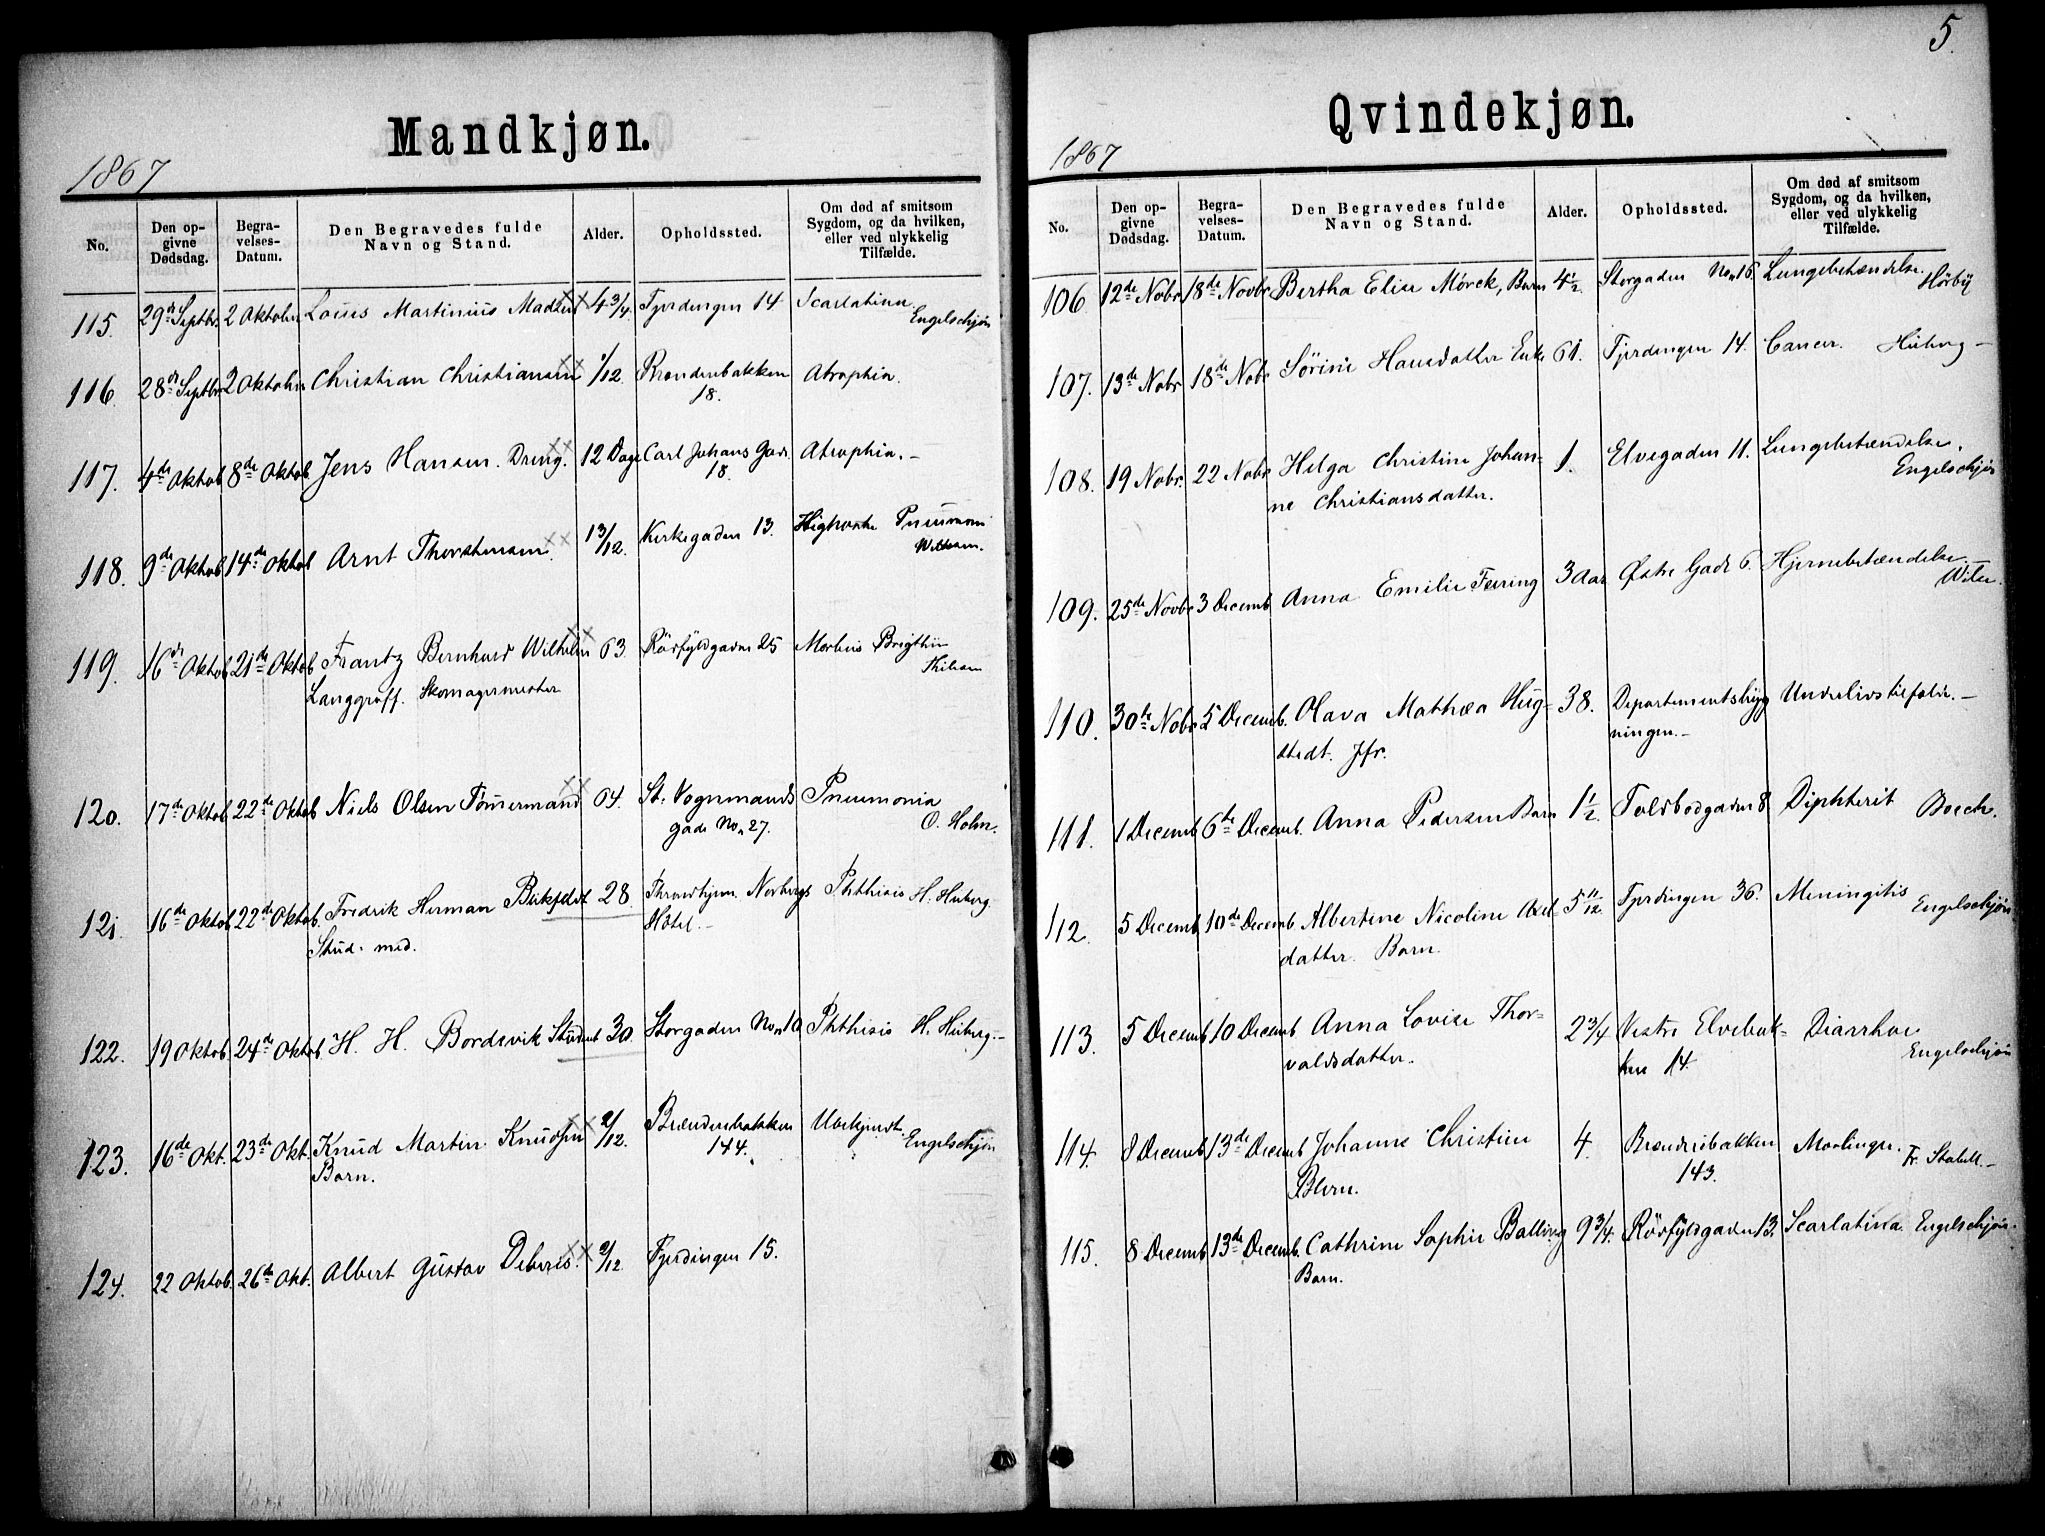 5.
Mandkjøn.
1867
No.
Den op-
givne
Dødsdag.
Begra-
velses-
Datum.
Den Begravedes fulde
Navn og Stand.
Alder.
Opholdssted.
Om død af smitsom
Sygdom, og da hvilken,
eller ved ulykkelig
Tilfælde.
115. 29de Septbr. 2 Oktober Louis Martinius Madsen xx 4 3/4 Fjerdingen 14 Scarlatina.
Engelschjøn
116. 28de Septbr. 2 Oktober Christian Christiansen xx 1/12. Brændenbakken Atrophia.
18.
117. 4de Oktob 8de Oktob Jens Hansen. Dreng. xx 12 Dage Carl Johans Gade Atrophia.-
18.
118. 9de Oktob 14de Oktob Arnt Thorstensen xx 13/12. Kirkegaden 13. Pneumoni
119. 16de Oktob 21de Oktob Frantz Bernhard Wilhelm xx 63. Rörfyldgaden 25 Morbus Brigthii
Langgraff. Skomagermester
120. 17de Oktob 22de Oktob Niels Olsen Tømmermand xx 64. St. Vognmands Pneumonia
gade No. 27. O. Holm.
121. 16de Oktob 22de Oktob. Fredrik Herman Birkfeldt 28. Throndhjem. Norbergs Phthisis H. Heiberg.
Stud. med. Hotel.-
122. 19 Oktob. 24de Oktob. H. H. Bordevik Student 30. Storgaden No. 10 Phthisis H. Heiberg.-
123. 16de Okt. 23de Okt. Knud Martin Knudsen xx 2/12. Brændenbakken Ubekjendt.
Barn. 144. Engelschjøn
124. 22 Oktob. 26de Okt. Albert Gustav xx 2/12 Fjerdingen 15.
Qvindekjøn.
1867
No.
Den op-
givne
Dødsdag.
Begra-
velses-
Datum.
Den Begravedes fulde
Navn og Stand.
Alder.
Opholdssted.
Om død af smitsom
Sygdom, og da hvilken,
eller ved ulykkelig
Tilfælde.
106 12de Nobr. 18de Novbr. Bertha Elise Mørck, Barn 4 1/2 Storgaden No. 16. Lungebetændelse.
Hörbÿ
107. 13de Nobr 18de Nobr Sørine Hansdatter Enke 61. Fjerdingen 14. Cancer. Heiberg-
108. 19 Nobr. 22 Nobr Helga Christine Johan- 1. Elvegaden 11. Lungebetændelse.
ne Christiansdatter. Engelschjøn
109. 25de Novbr 3 Decemb. Anna Emilie Feiring 3 Aar Østre Gade 6. Hjernebetændelse.
110. 30te Nobr 5 Decemb. Olava Mathea Hug- 38. Departementsbyg Underlivstilfælde.-
stedt. Jfr. ningen.-
111. 1 Decemb 6te Decemb. Anna Pedersen Barn 1 1/2. Toldbodgaden 8 Diphterit Boeck.
112. 5 Decemb. 10de Decemb. Albertine Nicoline Axel 5 11/12. Fjerdingen 36. Meningitis
datter. Barn. Engelschjøn
113. 5 Decemb 10 Decemb Anna Lovise Thor- 2 3/4 Vestre Elvebak- Diarrhoe
valdsdatter. ken 14. Engelschjøn
114. 8 Decemb 13de Decemb Johanne Christine 4. Brænderibakken Mæslinger.
Blern. 143. Fr. Stabell.-
115. 8 Decemb 13de Decemb. Cathrine Sophie Balling 9 3/4. Rörfyldgaden 13. Scarlatina Engelschjøn.
Barn.